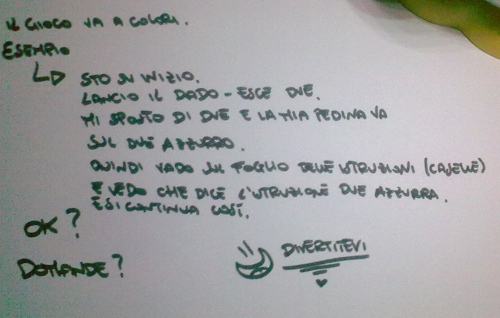 IL GIOCO VA A COLORI.
ESEMPIO
STO SU INIZIO.
LANCIO IL DADO - ESCE DUE.
MI SPOSTO DI DUE E LA MIA PEDINA VA
SUL DUE AZZURRO.
QUINDI VADO SUL FOGLIO DELLE ISTRUZIONI (CASELLE)
E VEDO CHE DICE L'ISTRUZIONE DUE AZZURRA.
E SI CONTINUA COSÌ.
OK?
DIVERTITEVI
DOMANDE?